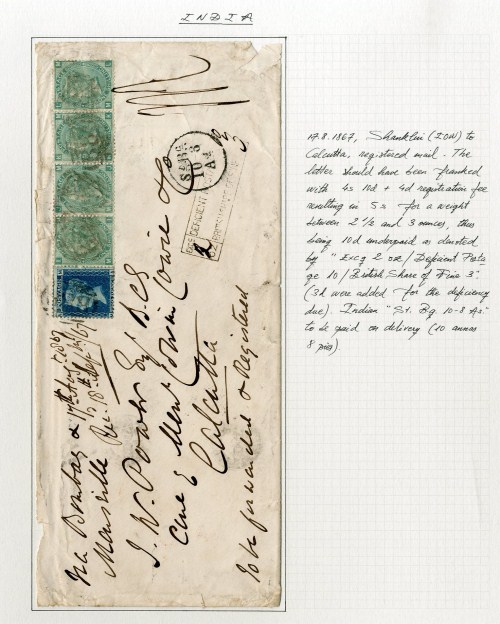 INDIA
17.8.1867, Shanklin (IOW) to
Calcutta, registered mail. The
letter should have been franked
with 4s 10d + 4d registration fee
resulting in 5s for a weight
between 2 1/2 and 3 ounces, thus
being 10d underpaid as denoted
by "Exc.g 2 oz / Deficient Posta
ge 10 / British Share of Fine 3"
(3d were added for the deficiency
due). Indian "St. Bg. 10-8 As."
to be paid on delivery (10 annas
8 pies).
Via Bombay &
Marseille
17th Aug. 1867
Rec. 18th Sept. 1867
J. W. Power Esq. B.C.S.
Care of Mess.
Calcutta
To be forwarded & Registered
St BG
10 8
AS
DEFICIENT
3